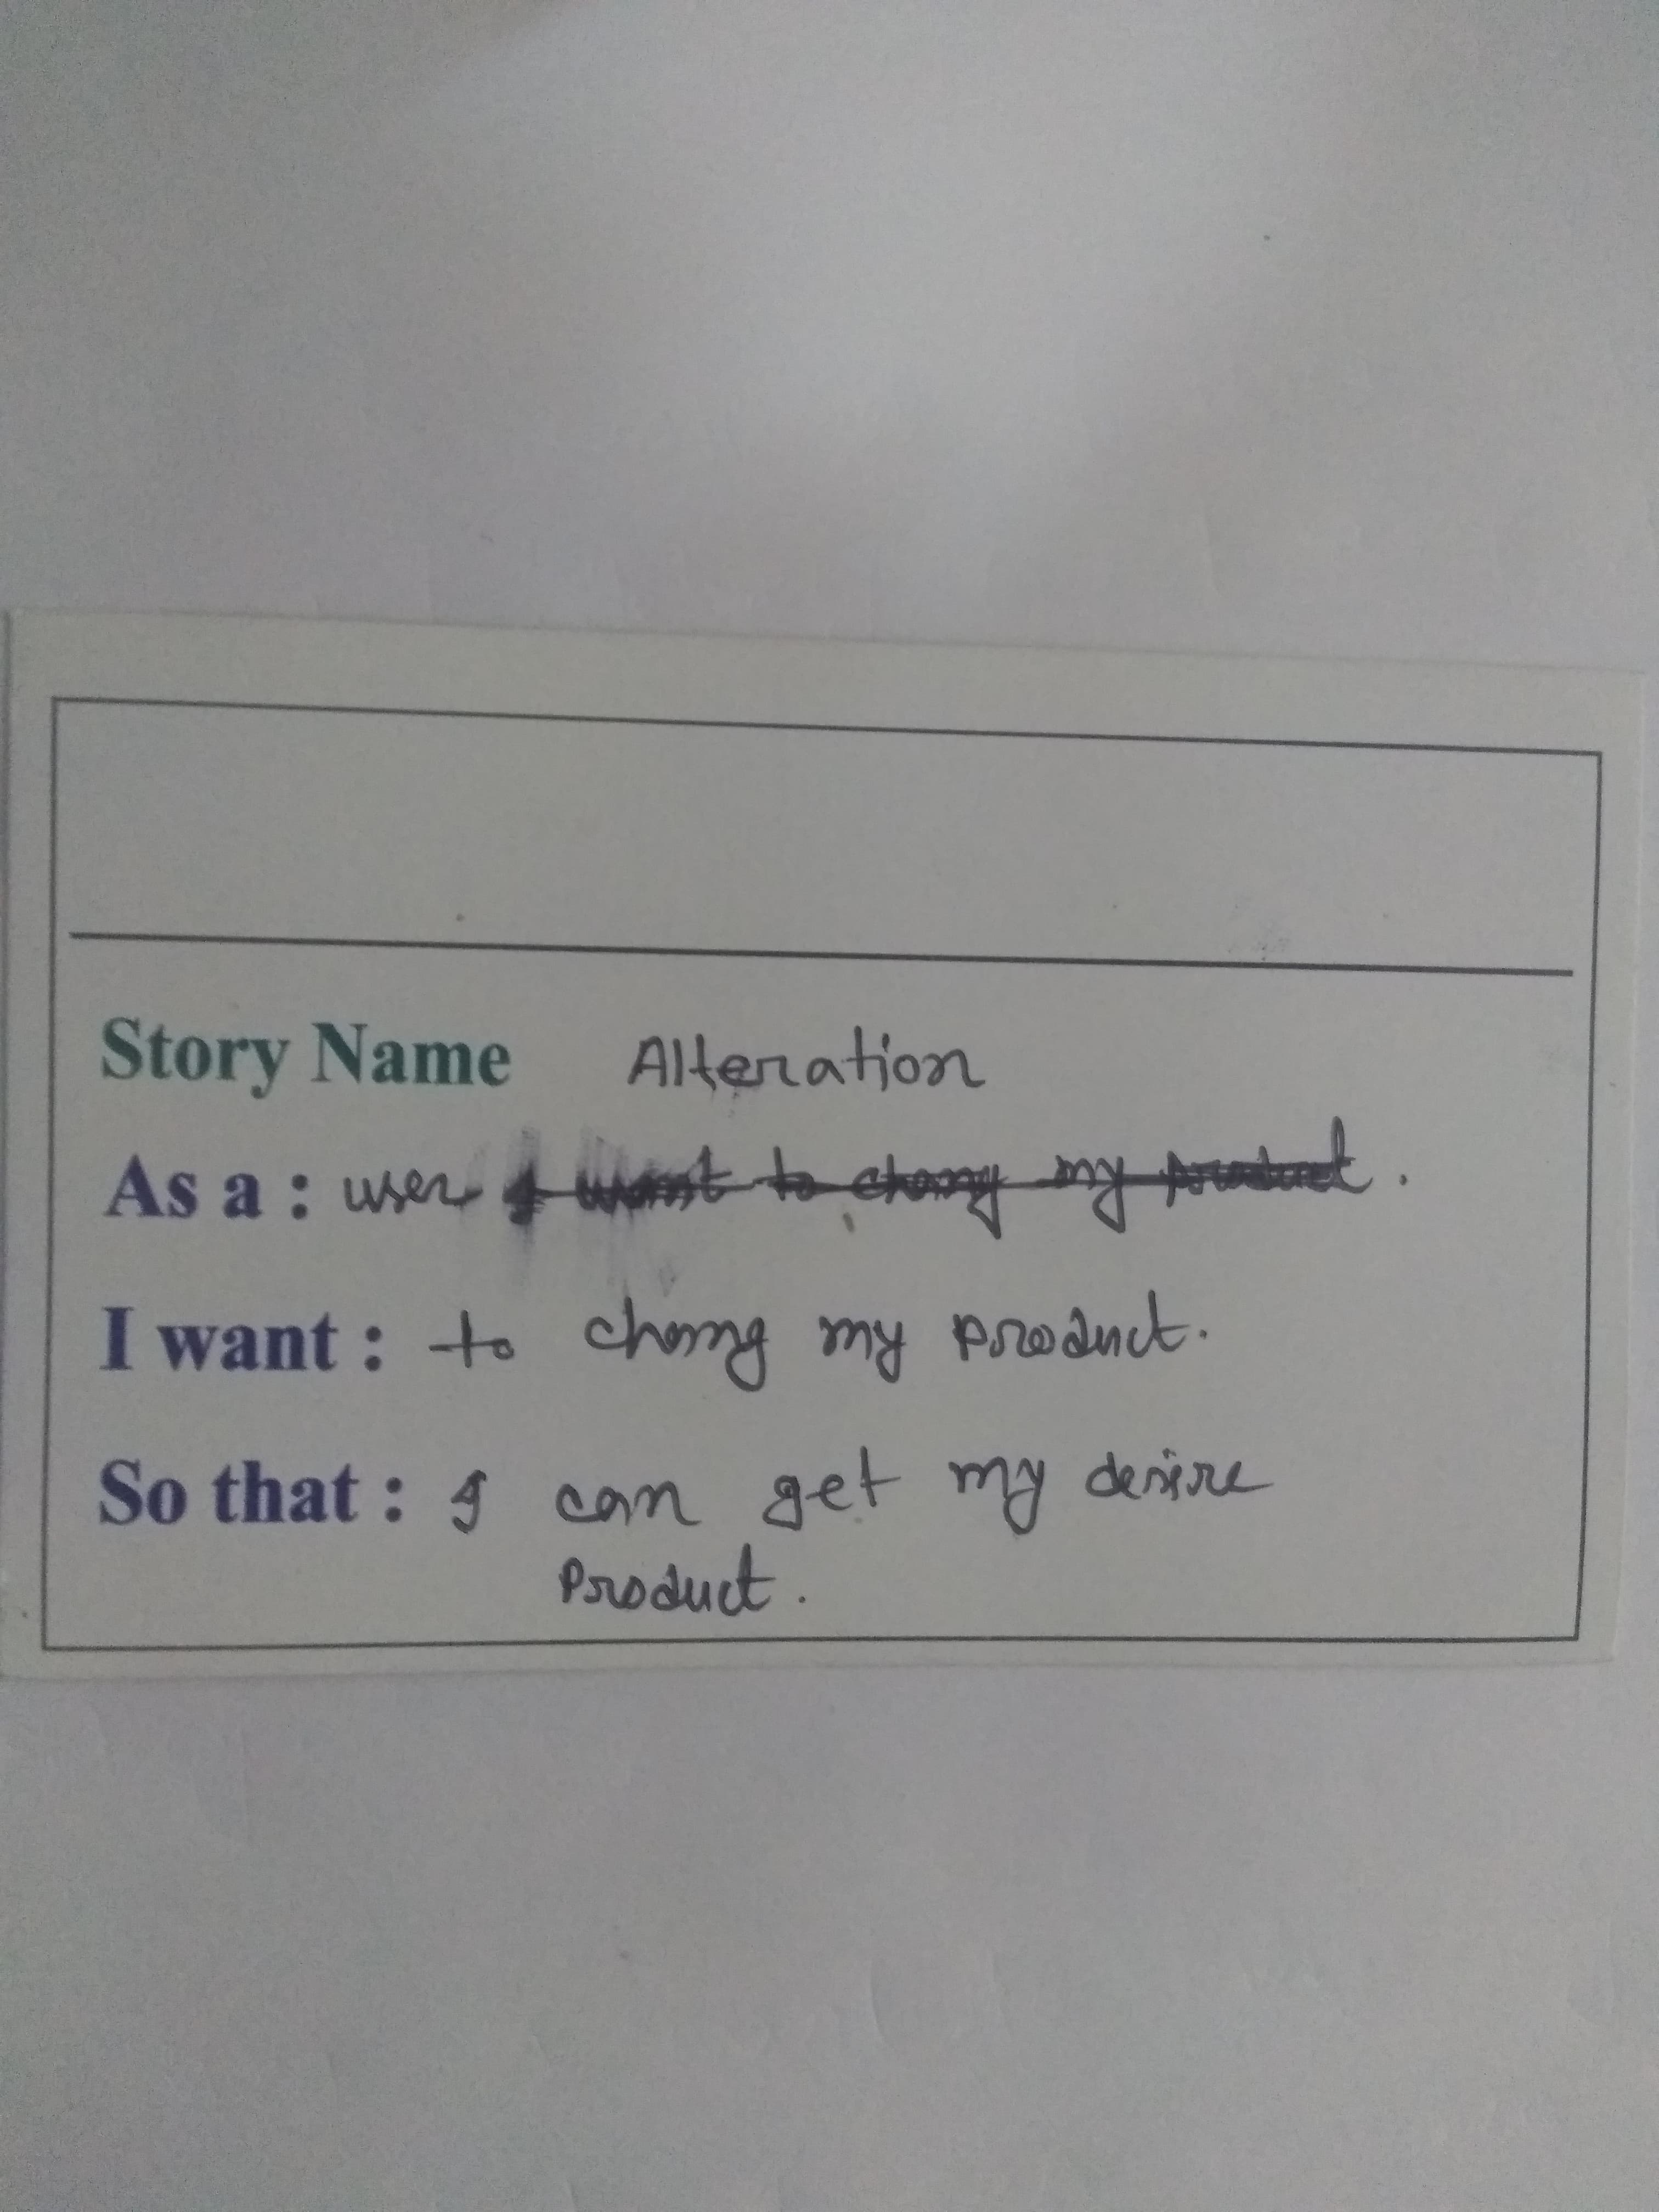 Story Name Alteration
As a : user I want to chang my product.
I want : to chang my product.
So that : I can get my desire
Product.